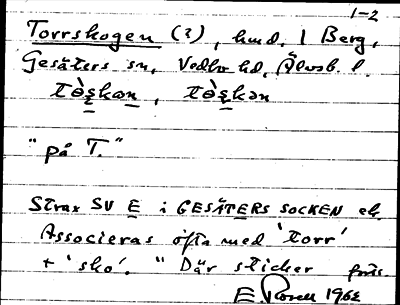 1-2
Torrskogen (?), hmd. 1 Berg,
Gesäters sn, Vedbo hd, Älvsb. l.
på T."
Strax SV E i GESÄTERS SOCKEN ek.
Associeras ofta med 'torr'
+ 'sko'. "Där sticker
E Rosell 1962